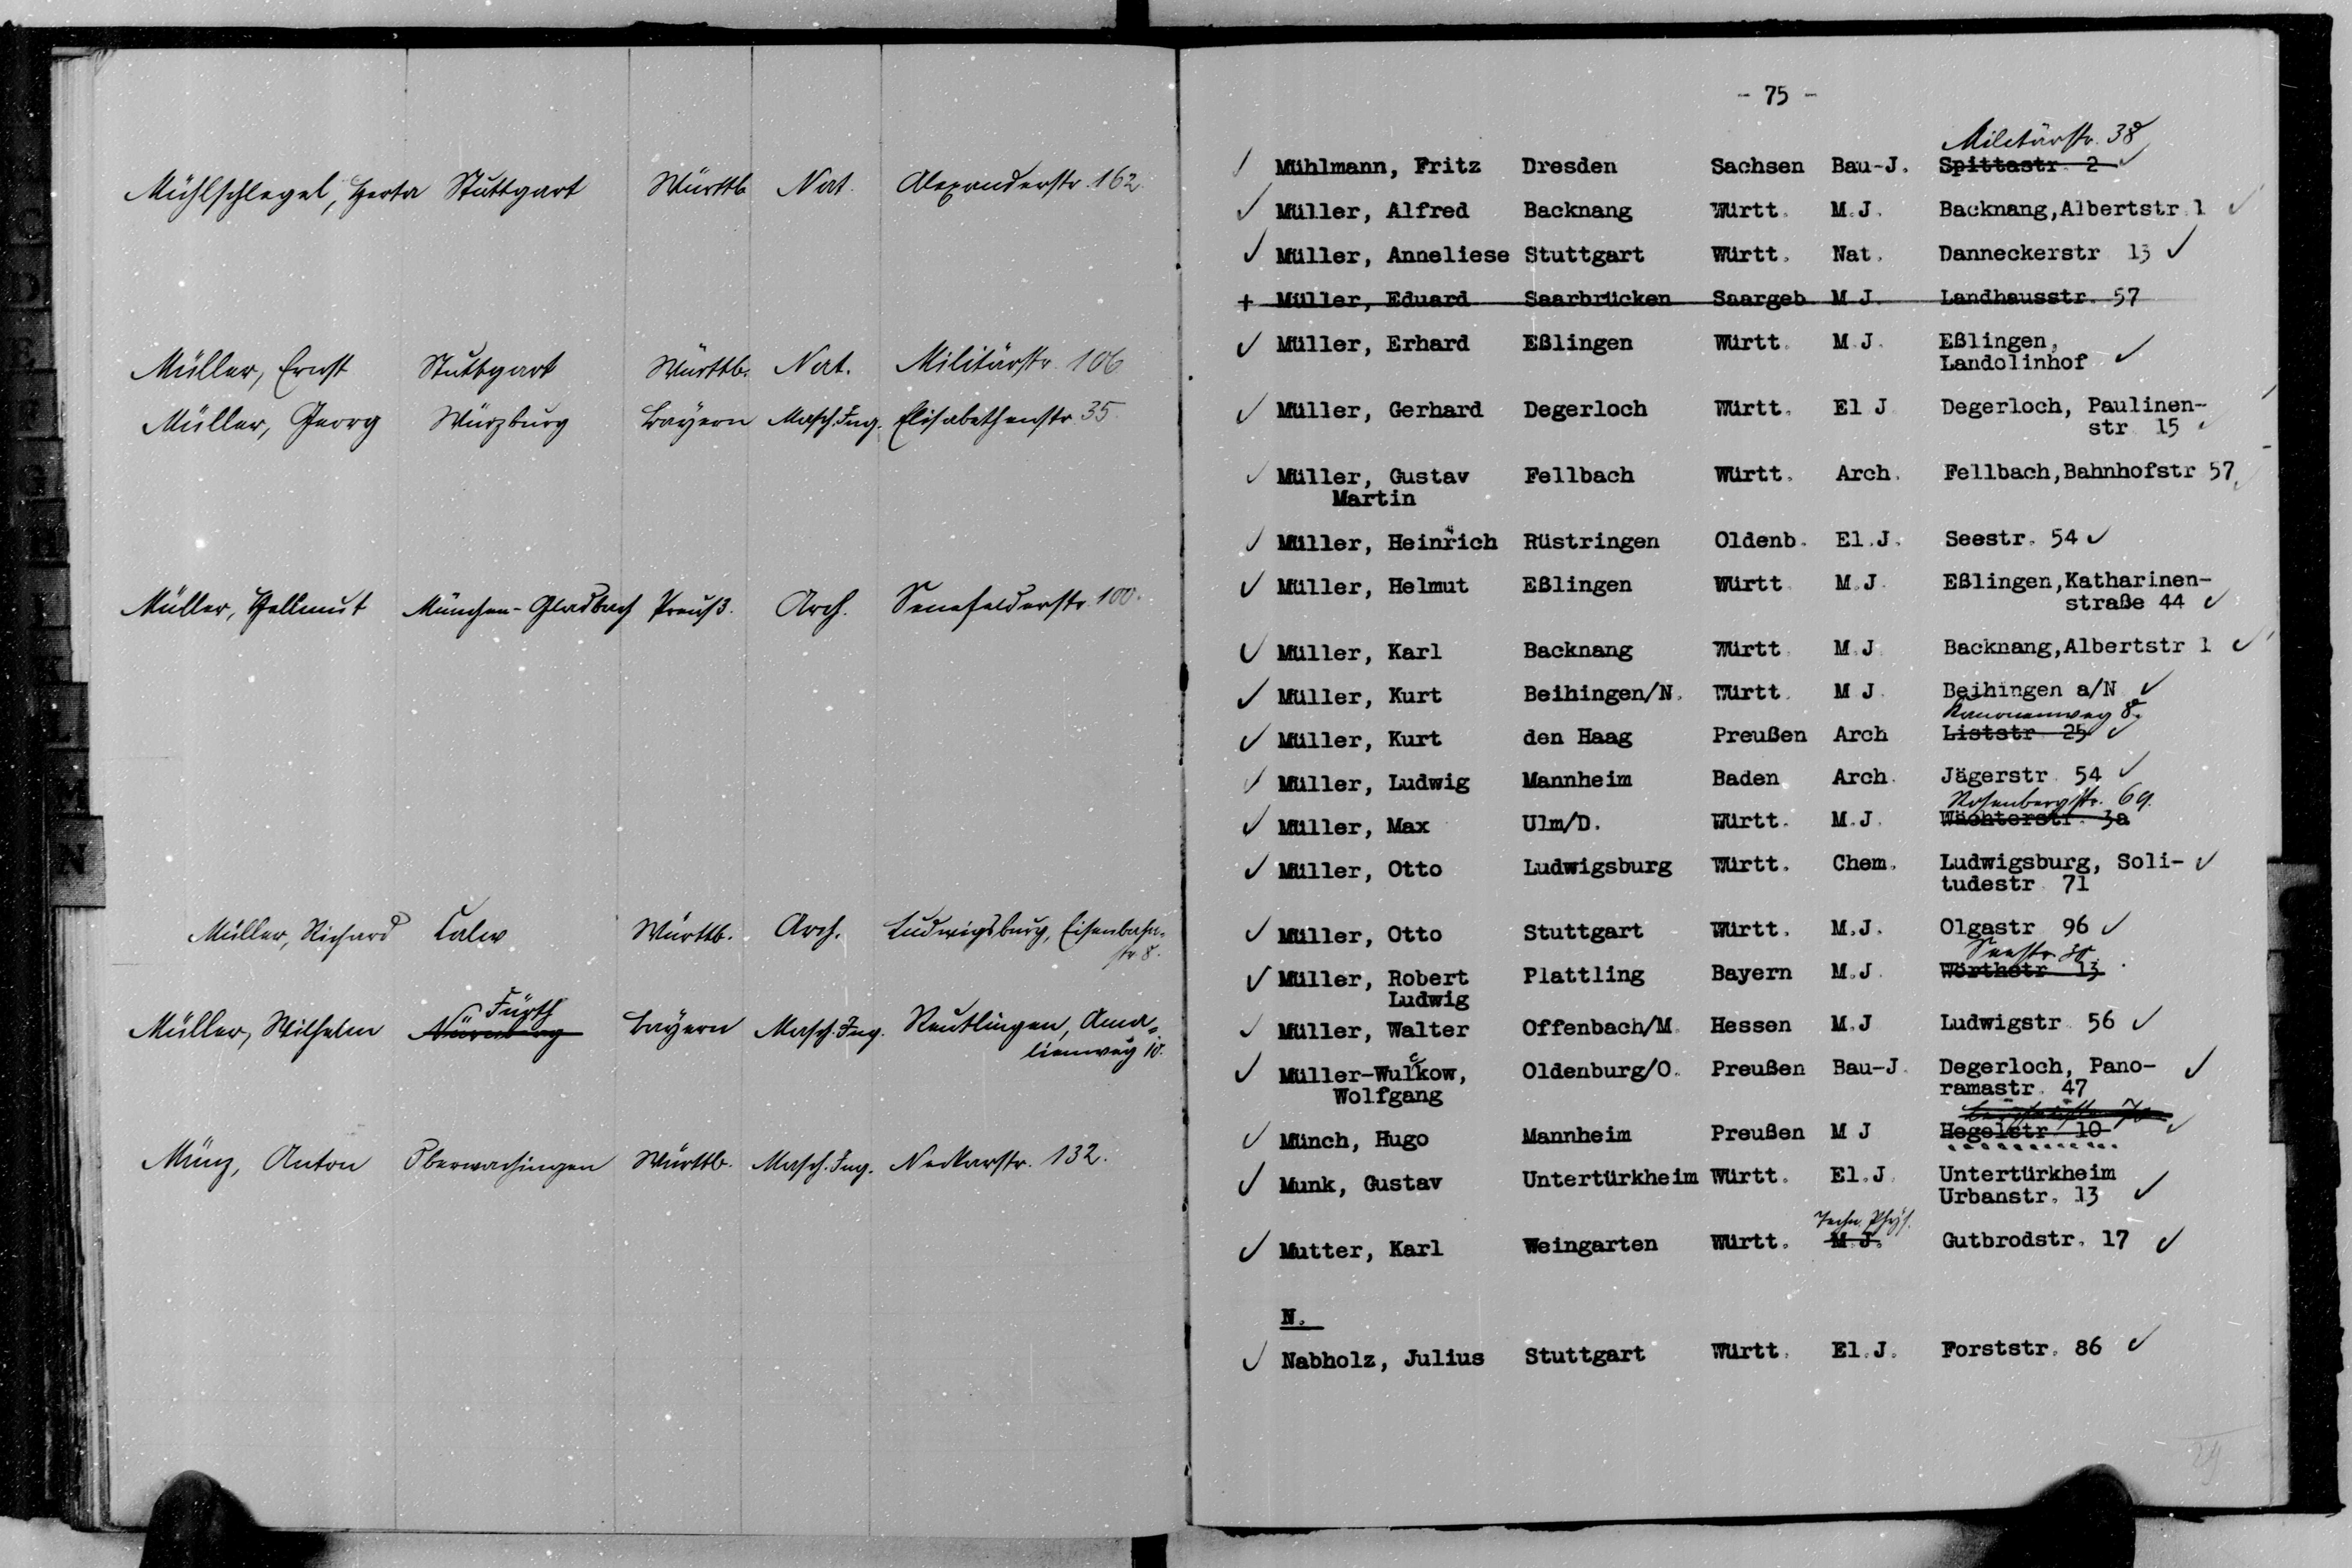 Mühlschlegel, Herta Stuttgart Württb. Nat. Alexanderstr. 162.
Müller, Ernst Stuttgart Württb. Nat. Militärstr. 106
Müller, Georg Würzburg Bayern Masch.Ing. Elisabethenstr. 35.
Müller, Hellmut München-Gladbach Preuß. Arch. Senefelderstr. 100.
Müller, Richard Calw Württb. Arch. Ludwigsburg, Eisenbahn-
str. 8.
Fürth
Müller, Wilhelm Nürnberg Bayern Masch.Ing. Reutlingen, Ama-
lienweg 10.
Münz, Anton Oberwachingen Württb. Masch.Ing. Neckarstr. 132.
- 75 -
Militärstr. 38
Mühlmann, Fritz Dresden Sachsen Bau-J. Spittastr. 2
Müller, Alfred Backnang Württ. M.J. Backnang, Albertstr 1
Müller, Anneliese Stuttgart Württ. Nat. Danneckerstr 13
+ Müller, Eduard Saarbrücken Saargeb M J. Landhausstr. 57
Müller, Erhard Eßlingen Württ. M.J. Eßlingen,
Landolinhof
Müller, Gerhard Degerloch Württ. El J Degerloch, Paulinen-
str 15
Müller, Gustav Fellbach Württ. Arch. Fellbach, Bahnhofstr 57
Martin
Müller, Heinrich Rüstringen Oldenb. El.J. Seestr. 54
Müller, Helmut Eßlingen Württ M.J. Eßlingen, Katharinen-
straße 44
Müller, Karl Backnang Württ M.J. Backnang, Albertstr 1
Müller, Kurt Beihingen/N. Württ. M J. Beihingen a/N
Kanonenweg 8.
Müller, Kurt den Haag Preußen Arch Liststr 25
Müller, Ludwig Mannheim Baden Arch. Jägerstr 54
Rosenbergstr. 69.
Müller, Max Ulm/D. Württ. M.J. Wächterstr. 3a
Müller, Otto Ludwigsburg Württ. Chem. Ludwigsburg, Soli-
tudestr 71
Müller, Otto Stuttgart Württ. M.J. Olgastr 96
Seestr.
Müller, Robert Plattling Bayern M.J. Wörthstr 13
Ludwig
Müller, Walter Offenbach/M. Hessen M.J Ludwigstr 56
c
Müller-Wulkow, Oldenburg/O. Preußen Bau-J. Degerloch, Pano-
Wolfgang ramastr. 47
Münch, Hugo Mannheim Preußen M J Hegelstr 10
Munk, Gustav Untertürkheim Württ. El.J. Untertürkheim
Urbanstr. 13
Techn. Phys.
Mutter, Karl Weingarten Württ. M.J. Gutbrodstr. 17
N.
Nabholz, Julius Stuttgart Württ. El.J. Forststr. 86
C
D
E
F
G
H
I
K
L
M
N